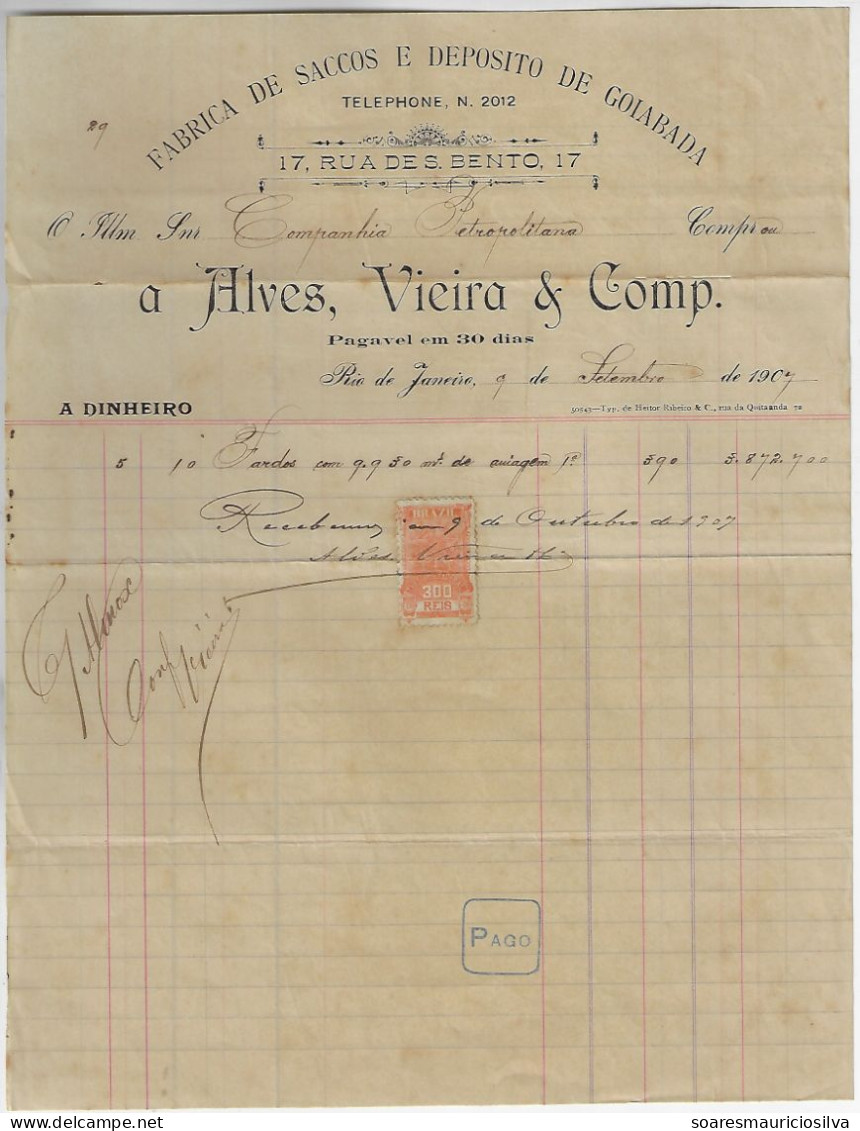 FABRICA DE SACCOS E DEPOSITO DE GOIABADA
TELEPHONE, N. 2012
29
17, RUA DE S. BENTO, 17
O Illm. Snr Companhia Petropolitana Comprou
a Alves, Vieira & Comp.
Pagavel em 30 dias
Rio de Janeiro, 9 de Setembro de 1907
A DINHEIRO
50543—Typ. de Heitor Ribeiro & C., rua da Quitaanda 72
5 10 Fardos com 9.930 mt. de aniagem 1ª 390 3.872.700
Recebemos em 9 de Outubro de 1907
Alves Vieira & C
BRAZIL
300
REIS
Almox
PAGO
soaresmauriciosilva